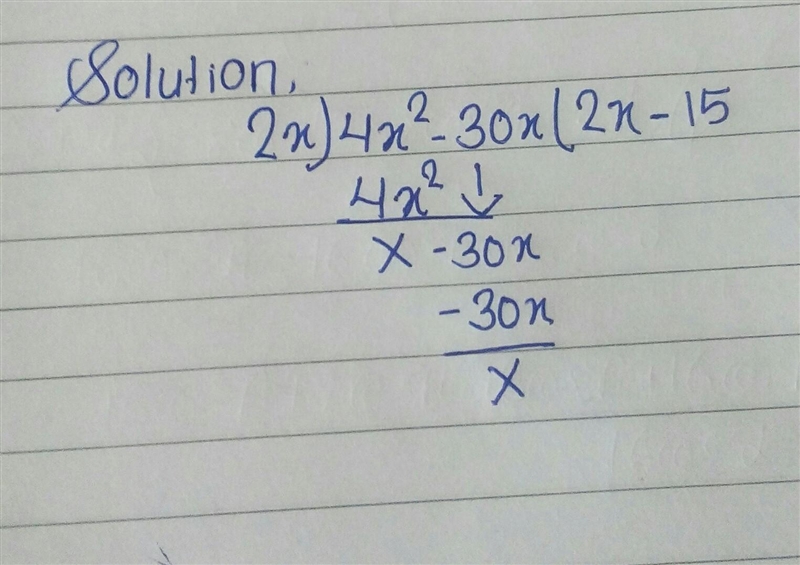 Solution,
2x)4x²-30x(2x-15
4x² ↓
x -30x
-30x
x